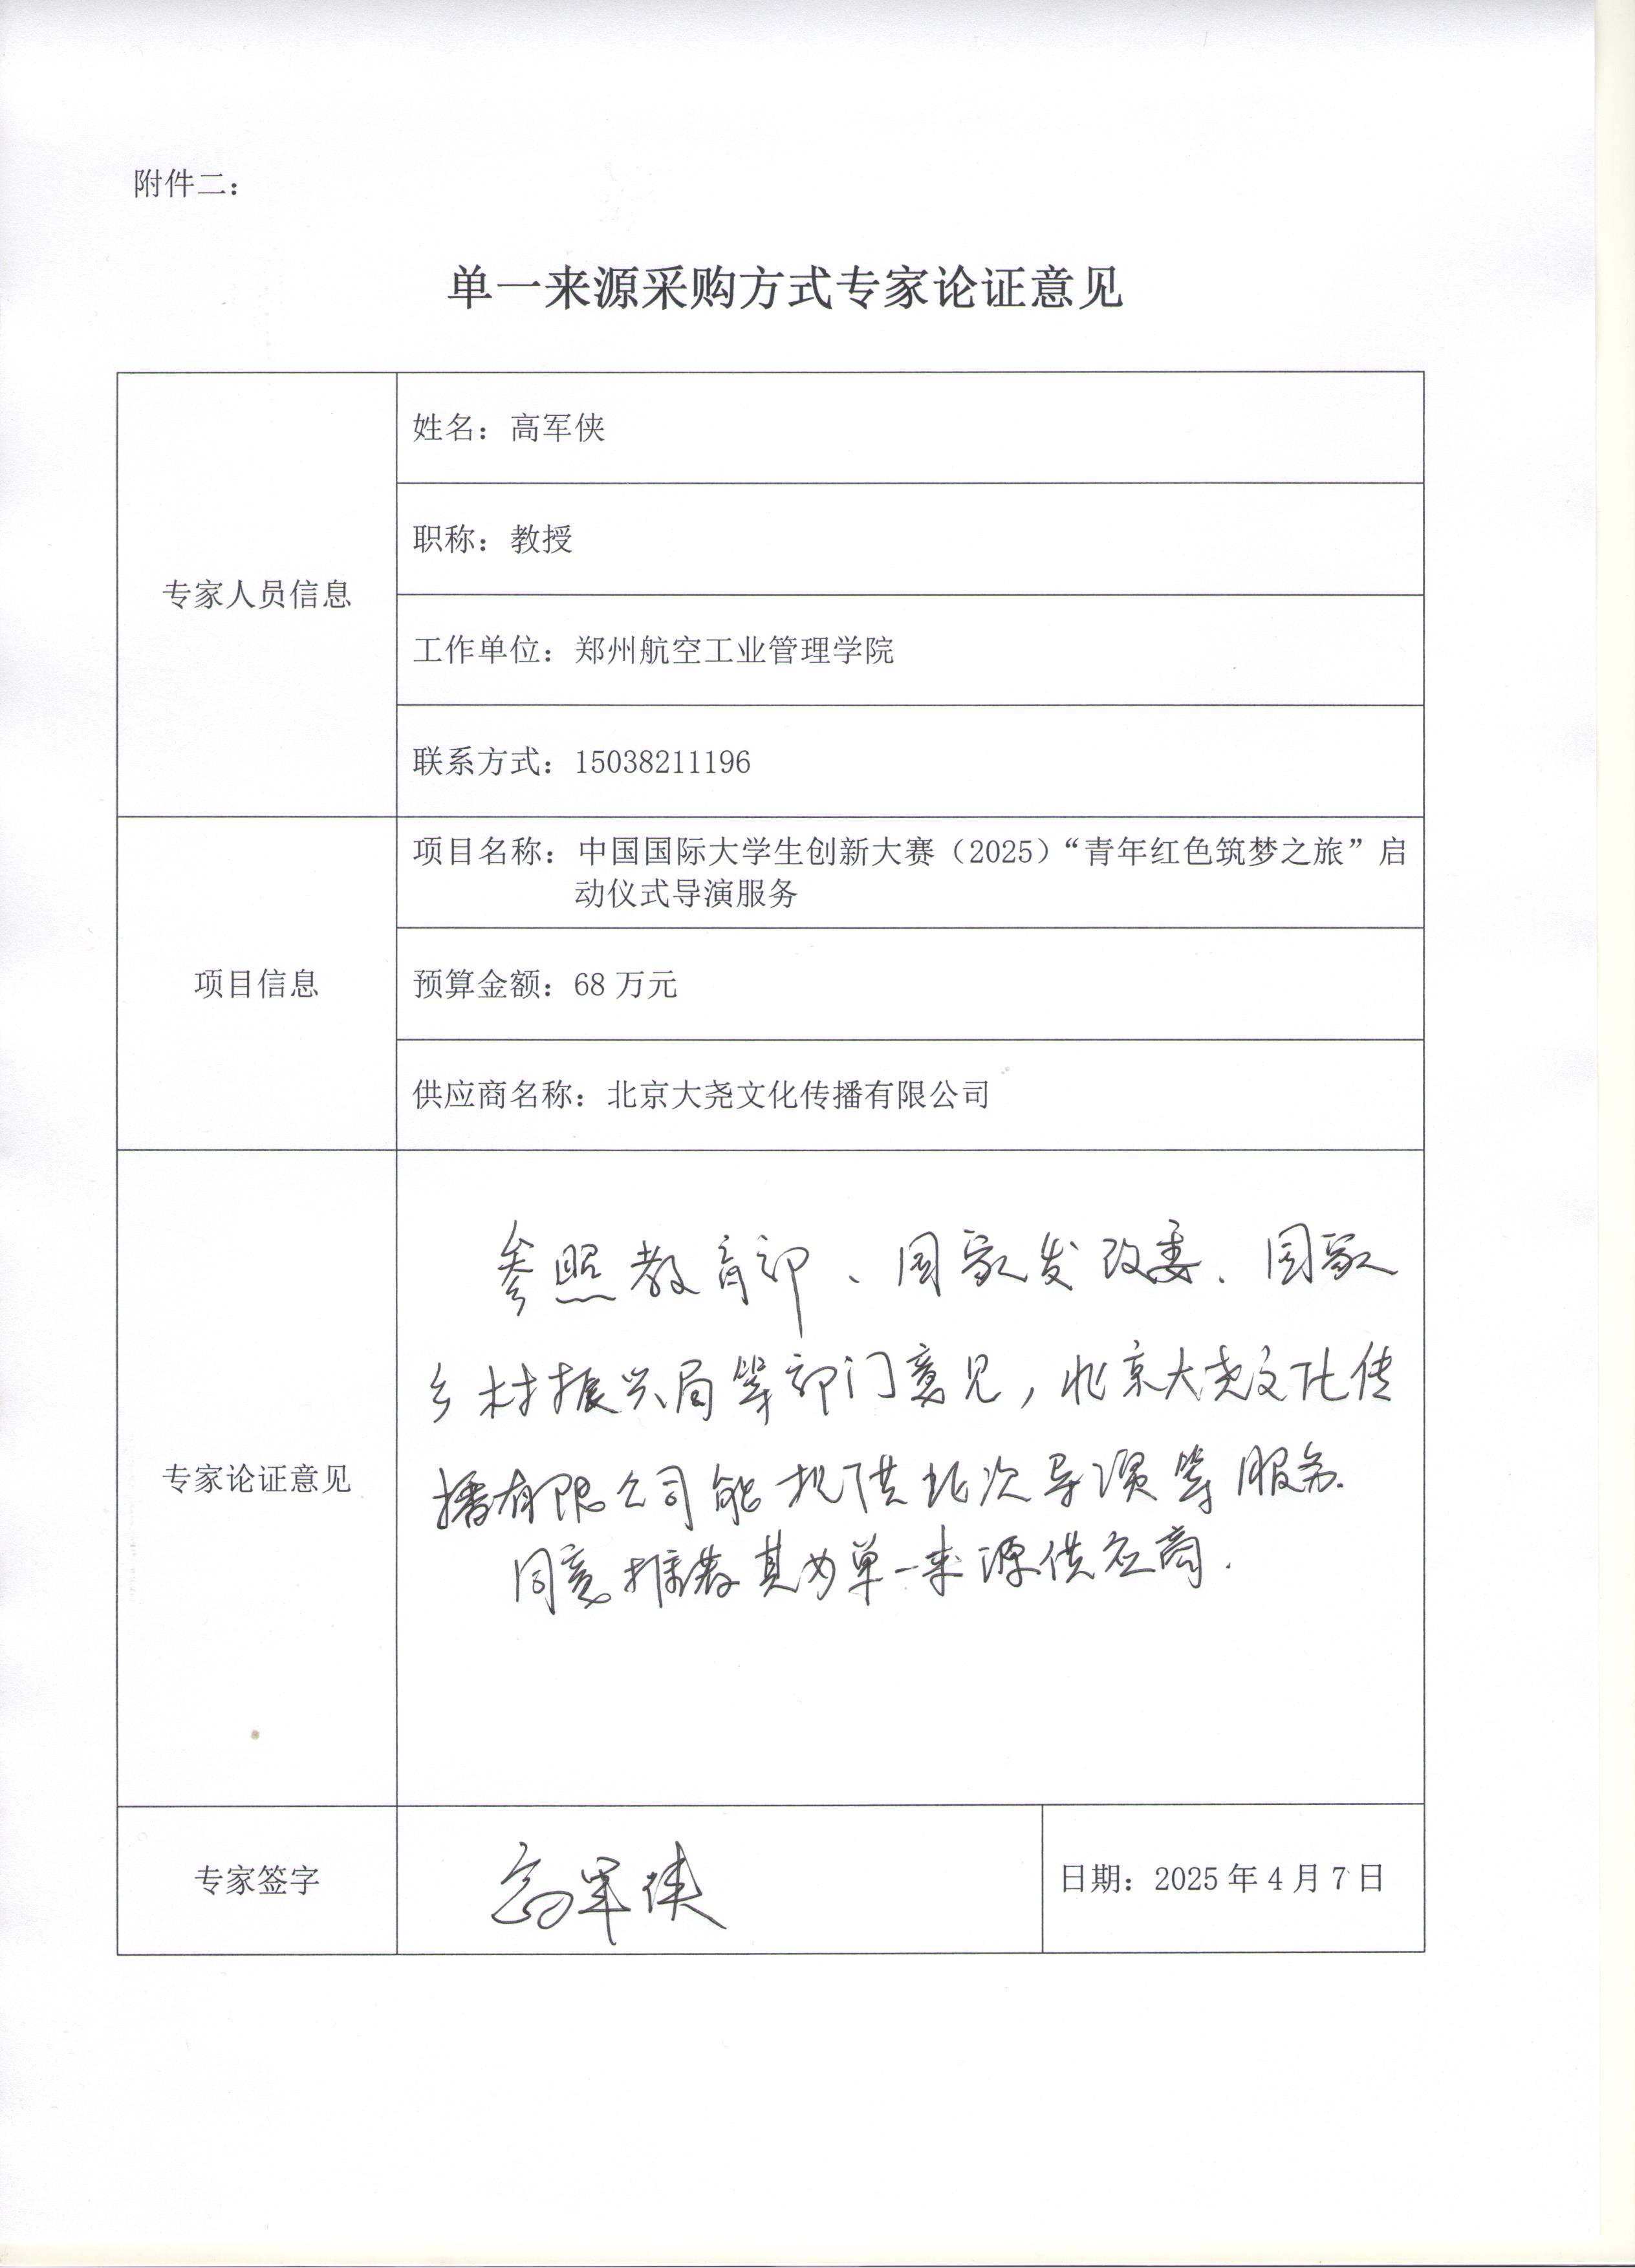 附件二：
单一来源采购方式专家论证意见
专家人员信息
姓名：高军侠
职称：教授
工作单位：郑州航空工业管理学院
联系方式：15038211196
项目信息
项目名称：中国国际大学生创新大赛（2025）“青年红色筑梦之旅”启
动仪式导演服务
预算金额：68 万元
供应商名称：北京大尧文化传播有限公司
专家论证意见
参照教育部、国家发改委、国家
乡村振兴局等部门意见，北京大尧文化传
播有限公司能提供此次导演等服务.
同意推荐其为单一来源供应商.
专家签字
高军侠
日期：2025 年 4 月 7 日